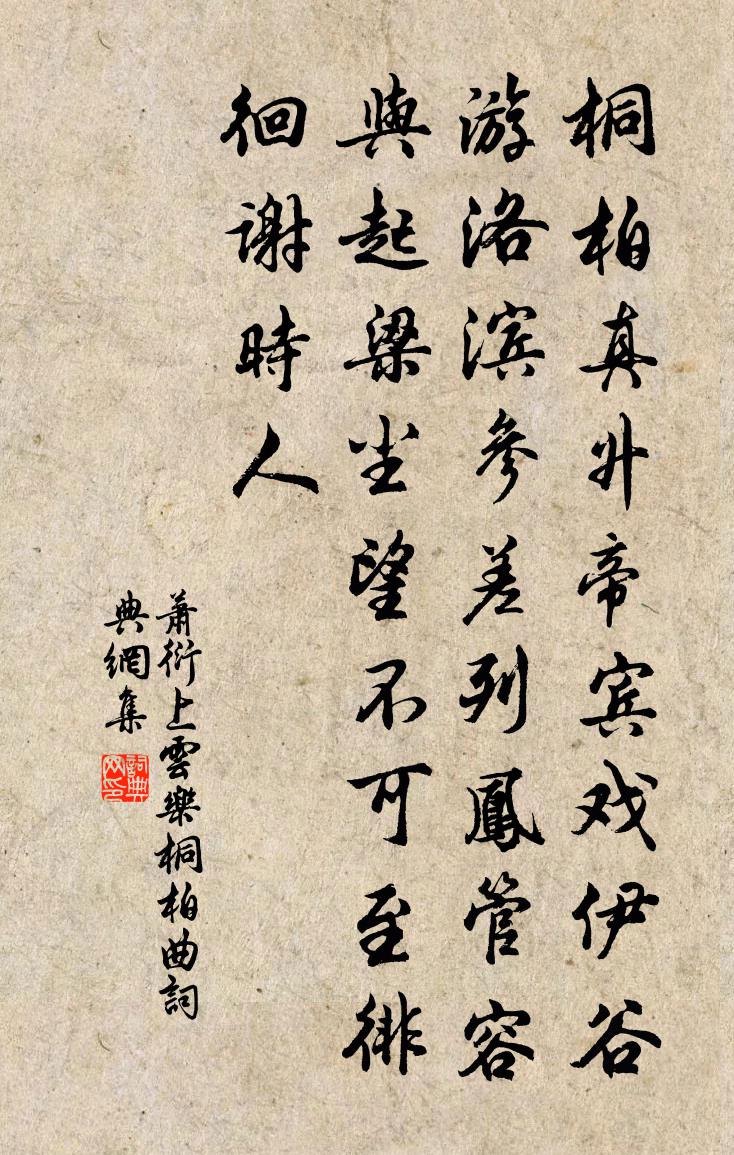 桐柏真升帝宾戏伊谷
游洛滨參差列鳳管容
與起梁尘望不可至徘
徊謝時人
萧衍上雲樂桐柏曲詞
典網集
詞典网印